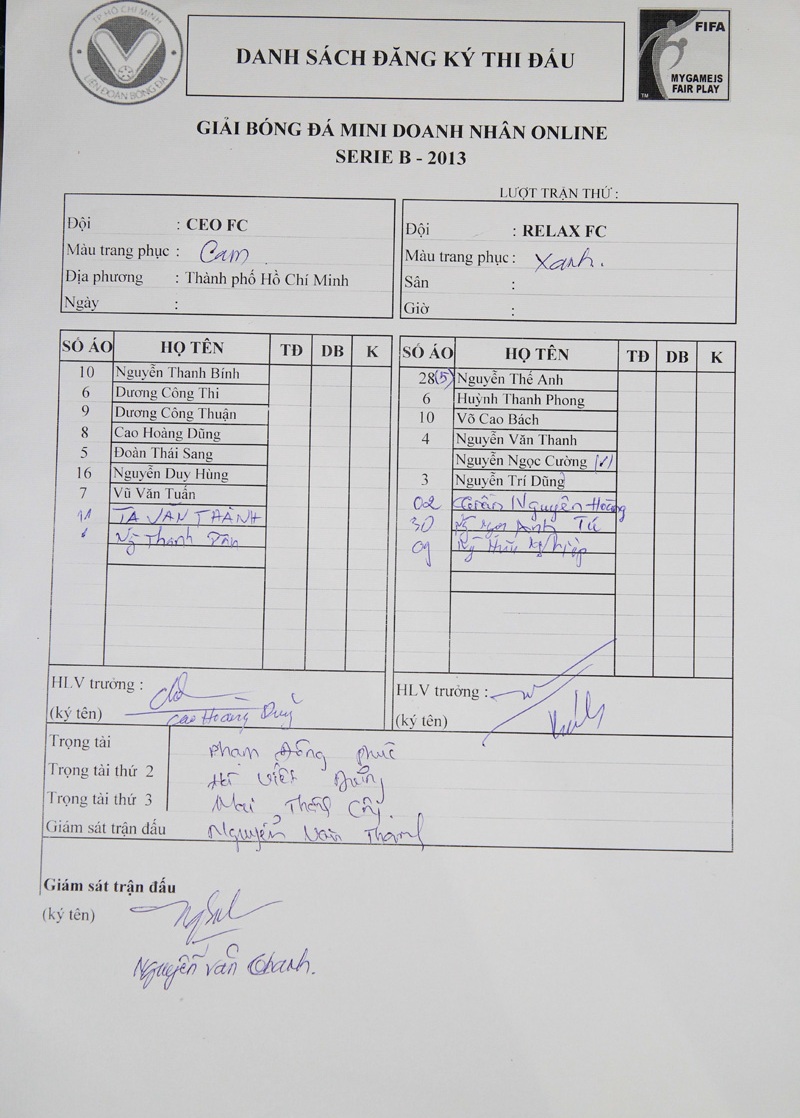 TP HỒ CHÍ MINH
LIÊN ĐOÀN BÓNG ĐÁ
DANH SÁCH ĐĂNG KÝ THI ĐẤU
FIFA
MY GAME IS
FAIR PLAY
TM
GIẢI BÓNG ĐÁ MINI DOANH NHÂN ONLINE
SERIE B - 2013
LƯỢT TRẬN THỨ :
Đội : CEO FC
Màu trang phục : Cam
Địa phương : Thành phố Hồ Chí Minh
Ngày :
Đội : RELAX FC
Màu trang phục : Xanh.
Sân :
Giờ :
SỐ ÁO HỌ TÊN TĐ DB K
10 Nguyễn Thanh Bính
6 Dương Công Thi
9 Dương Công Thuận
8 Cao Hoàng Dũng
5 Đoàn Thái Sang
16 Nguyễn Duy Hùng
7 Vũ Văn Tuấn
11 TẠ VĂN THÀNH
Ng Thanh
SỐ ÁO HỌ TÊN TĐ DB K
28(5) Nguyễn Thế Anh
6 Huỳnh Thanh Phong
10 Võ Cao Bách
4 Nguyễn Văn Thanh
Nguyễn Ngọc Cường (✓)
3 Nguyễn Trí Dũng
02 Trần Nguyên Hoàng
30 Anh Tú
09 Ng Hữu Nghiệp
HLV trưởng :
(ký tên) Cao Hoàng Duy
HLV trưởng :
(ký tên)
Trọng tài Phan Đồng Phúc
Trọng tài thứ 2 Việt Dũng
Trọng tài thứ 3 Mai
Giám sát trận đấu Nguyễn Văn Thanh
Giám sát trận đấu
(ký tên)
Nguyễn Văn Thanh.